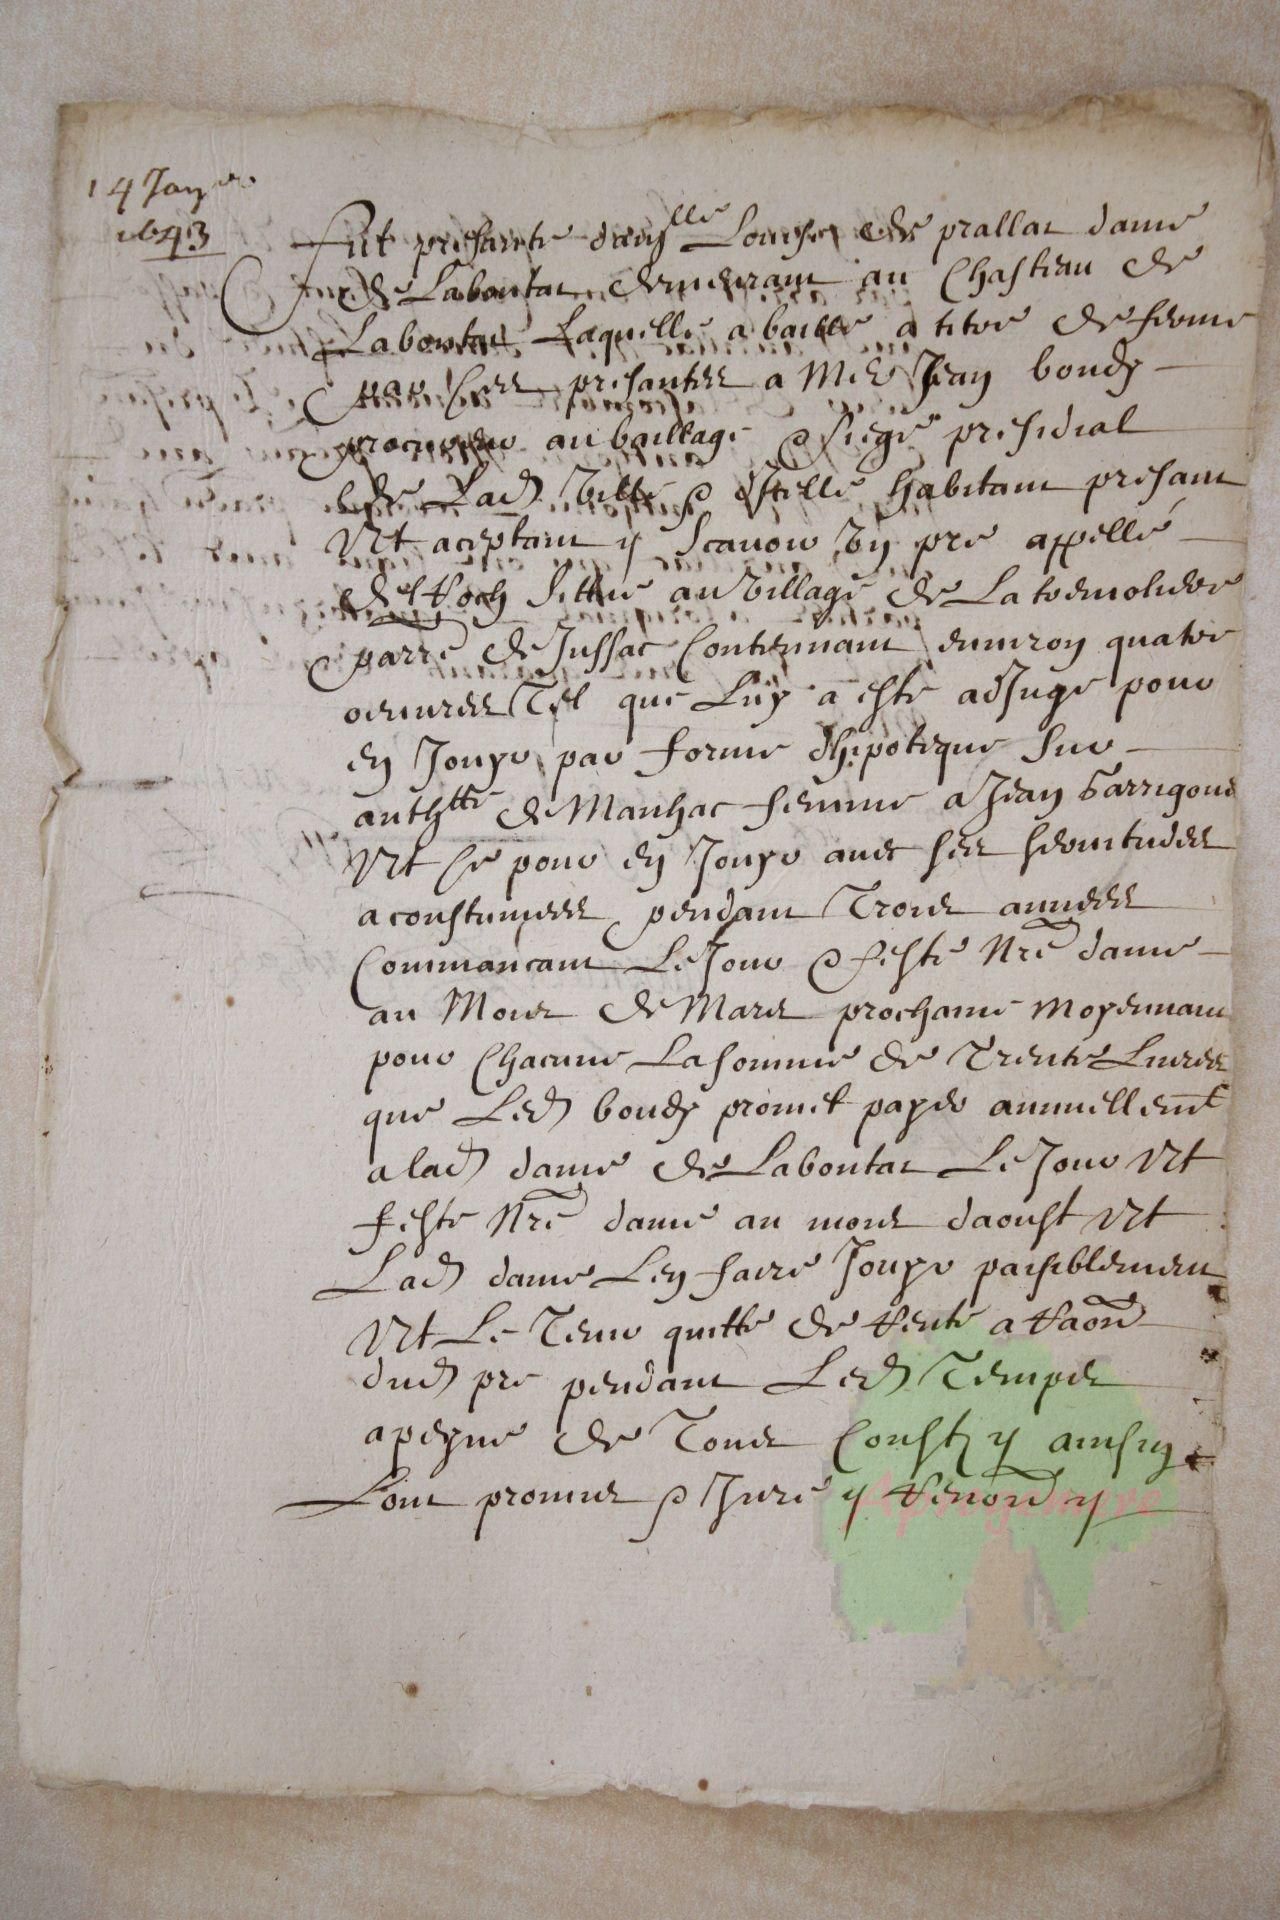 14 Janer
1643
Fut presante damlle Louise de prallat dame
de Laboutat demurant au Chasteau de
Laboutat Laquelle a baillé a titre de ferme
par Ces presantes a Me Jean boudy
procureur au baillage & siege presidial
de Lad ville & Icelle habitant presant
Et aceptant Scavoir un pre appellé
sittue au village de
parre de Jussac Contennant environ quatre
oeuvres Tel que Luy a este adjuge pour
en Jouyr par forme dhipoteque sur
anthtte de Manhac femme a Jean Garrigous
Et Ce pour en Jouyr avec ses servitudes
acoustumees pendant Trois annees
Commancant Le Jour & feste Nre dame
au Mois de Mars prochaine Moyennant
pour Chacune La somme de Trente Livres
que Led boudy promet payer annuellemt
a lad dame de Laboutat Le Jour Et
feste Nre dame au mois daoust Et
Lad dame Len faire Jouyr paisiblement
Et Le Tenir quitte de Rente a Raon
dud pre pendant Led Temps
a peyne de Tous Coust ainsin
Lont promis & Jure Renon
Aprogemere